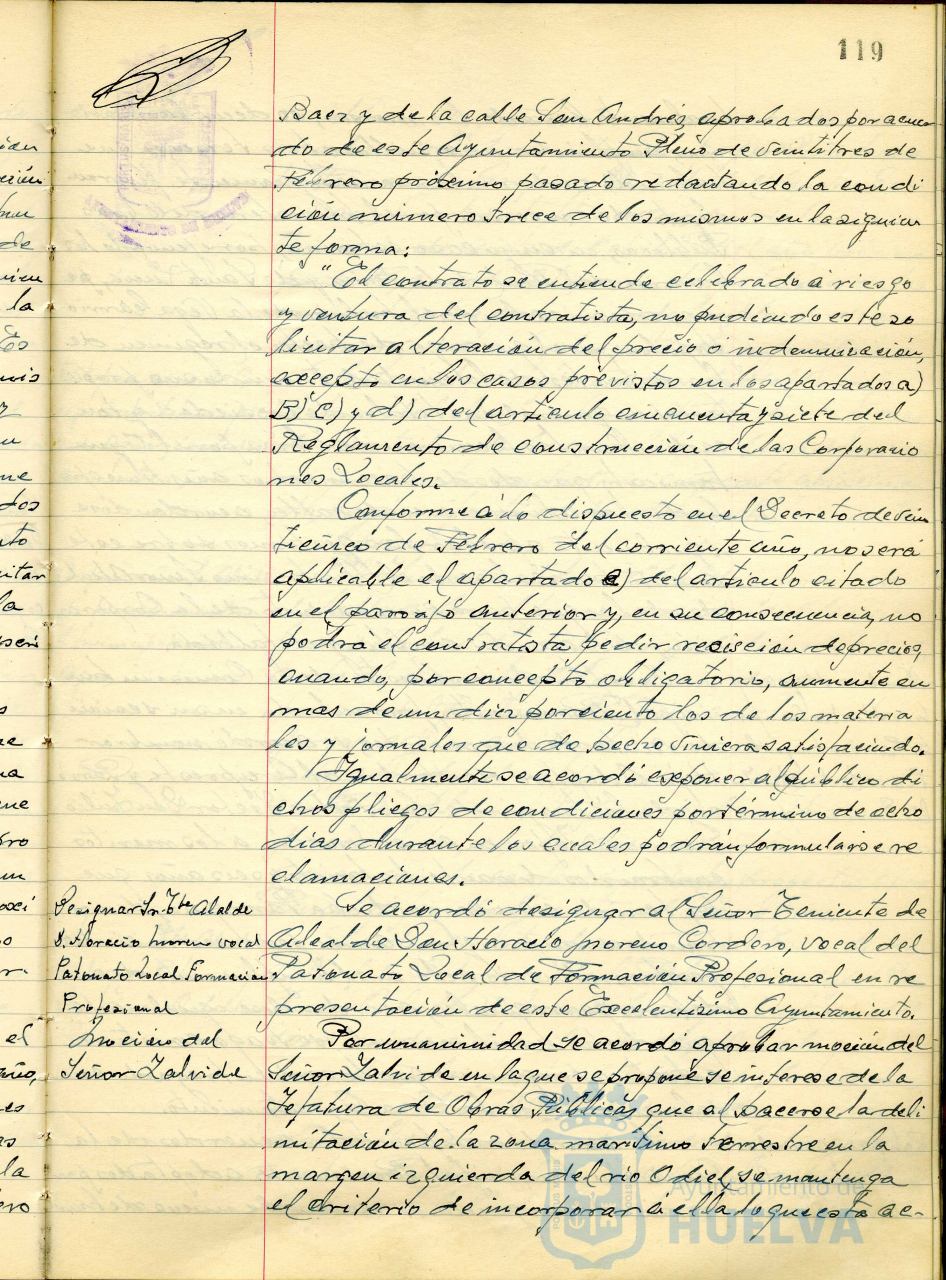 119
Baez y de la calle San Andrés, aprobados por acuer
do de este Ayuntamiento Pleno de veintitres de
Febrero próximo pasado redactando la condi
ción número trece de los mismos en la siguien
te forma:
"El contrato se entiende celebrado a riesgo
y ventura del contratista, no pudiendo este so
licitar alteración del precio o indemnización,
excepto en los casos previstos en los apartados a)
B) C) y d) del articulo cincuenta y siete del
Reglamento de construcción de las Corporacio
nes Locales.
Conforme a lo dispuesto en el Decreto de vein
ticinco de Febrero del corriente año, no será
aplicable el apartado a) del articulo citado
en el parrafo anterior y, en su consecuencia, no
podrá el contratista pedir resisción de precios,
cuando, por concepto obligatorio, aumente en
mas de un diez por ciento los de los materia
les y jornales que de hecho viniera satisfaciendo.
Igualmente se acordó exponer al público di
chos pliegos de condiciones por término de ocho
dias durante los cuales podrán formularse re
clamaciones.
Designar Sr. Tte Alcalde
D. Horacio Moreno vocal
Patonato Local Formacion
Profesional
Se acordó designar al Señor Teniente de
Alcalde Don Horacio Moreno Cordero, vocal del
Patonato Local de Formación Profesional en re
presentación de este Excelentisimo Ayuntamiento.
Moción del
Señor Zalvide
Por unanimidad se acordó aprobar moción del
Señor Zalvide en la que se propone se interese de la
Jefatura de Obras Públicas que al hacerse la deli
mitación de la zona maritimo terrestre en la
margen izquierda del rio Odiel, se mantenga
el criterio de incorporar a ella lo que está ac-
Ayuntamiento de
HUELVA